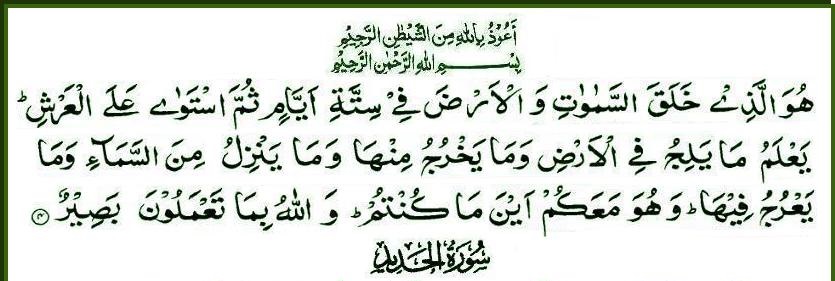 اَعُوْذُ بِاللّٰهِ مِنَ الشَّيْطٰنِ الرَّجِيْمِ
بِسْمِ اللهِ الرَّحْمٰنِ الرَّحِيْمِ
هُوَ الَّذِيْ خَلَقَ السَّمٰوٰتِ وَ الْاَرْضَ فِيْ سِتَّةِ اَيَّامٍ ثُمَّ اسْتَوٰى عَلَى الْعَرْشِ ؕ
يَعْلَمُ مَا يَلِجُ فِي الْاَرْضِ وَمَا يَخْرُجُ مِنْهَا وَمَا يَنْزِلُ مِنَ السَّمَآءِ وَمَا
يَعْرُجُ فِيْهَا ؕ وَ هُوَ مَعَكُمْ اَيْنَ مَا كُنْتُمْ ؕ وَ اللهُ بِمَا تَعْمَلُوْنَ بَصِيْرٌ ۴
سُوْرَةُ الْحَدِيْدِ